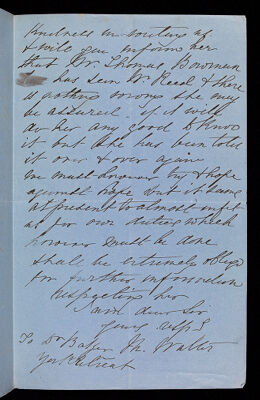 kindness in writing of
& will you inform her
that Mr. Thomas Bowman
has seen Mr. Reed & there
is nothing wrong she may
be assured if it will
do her any good to know
it but she has been told
it over & over again
we must however try & hope
against hope but it seems
at present to almost unfit
us for our duties which
however must be done
shall be extremely obliged
for further information
respecting her
I am dear Sir
yours resp
To Dr Baker Th. Walker
York Retreat